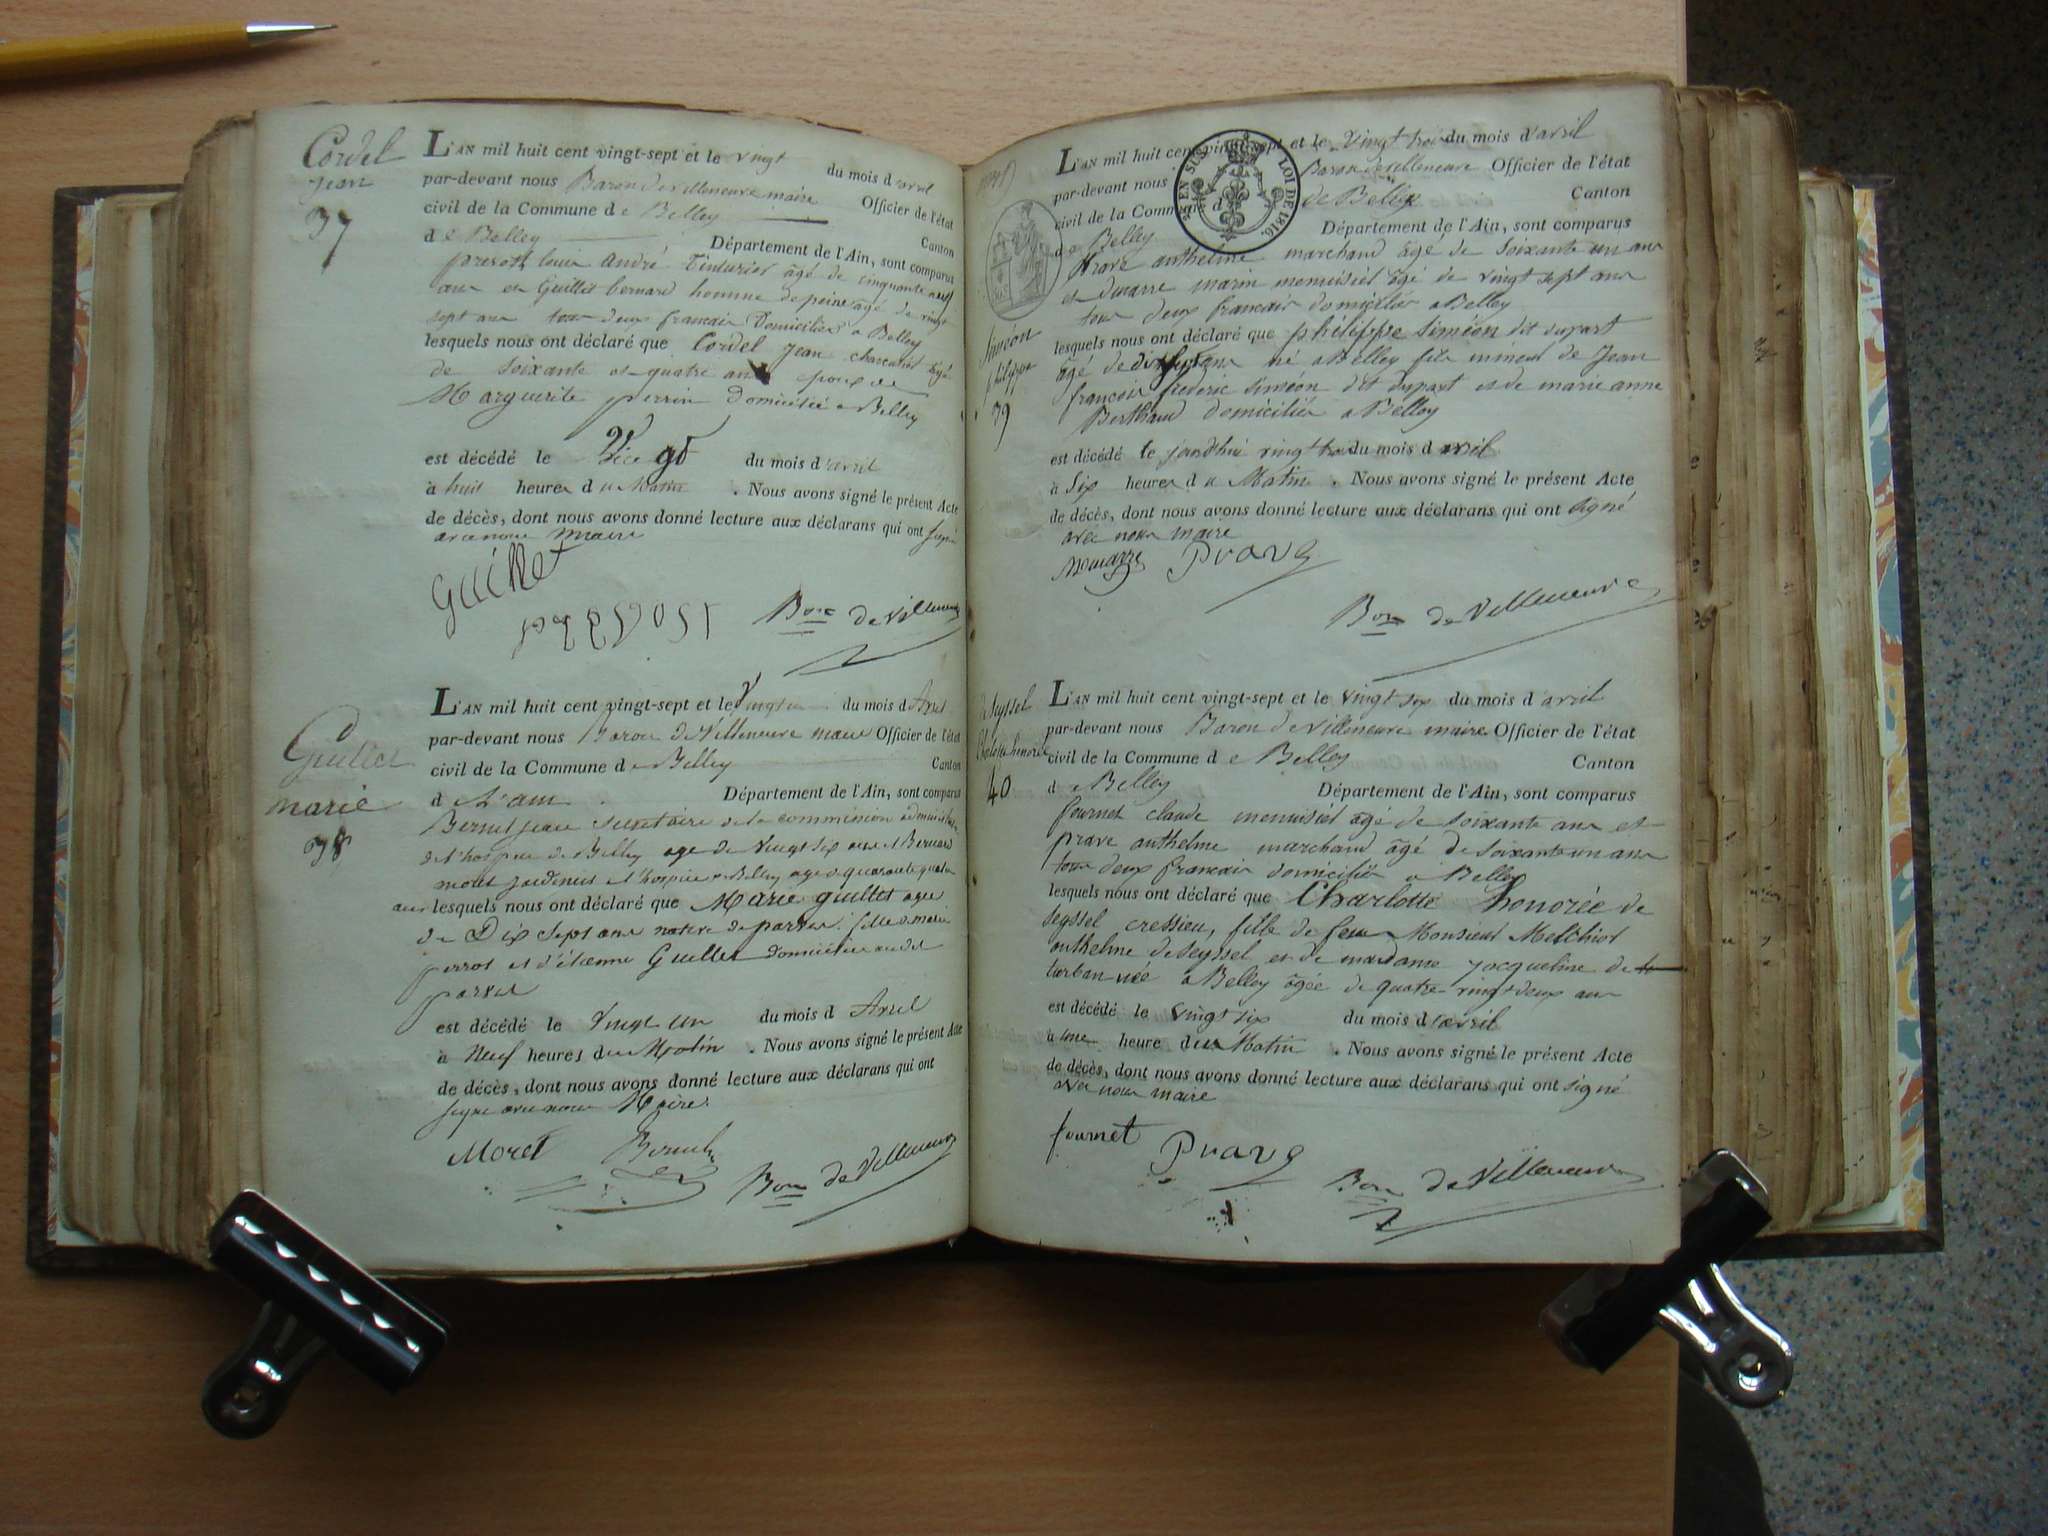 Cordel
jean
37
L'AN mil huit cent vingt-sept et le vingt du mois d'avril
par-devant nous Baron de villeneuve maire Officier de l'état
civil de la Commune de Belley Canton
de Belley Département de l'Ain, sont comparus
louis andré Teinturier âgé de cinquante neuf
ans et Guillet bernard homme de peine âgé de vingt
sept ans tous deux francais Domiciliés a Belley
lesquels nous ont déclaré que Cordel Jean âgé
de soixante et quatre ans epoux de
Marguerite perrin domicilié a Belley
est décédé le du mois d'avril
à huit heures du Matin . Nous avons signé le présent Acte
de décès, dont nous avons donné lecture aux déclarans qui ont signé
avec nous maire
Guillet
Bon de Villeneuve
Guillet
marie
38
L'AN mil huit cent vingt-sept et le Vingt un du mois d'Avril
par-devant nous Baron de Villeneuve maire Officier de l'état
civil de la Commune de Belley Canton
de L'ain . Département de l'Ain, sont comparus
jean Secretaire de la commission
de l'hospice de Belley age de Vingt six ans et Bernard
moret jardinier a l'hospice a Belley age de quarante quatre
ans lesquels nous ont déclaré que Marie guillet agée
de Dix Sept ans native de parves fille de marie
perrot et d'étienne Guillet domiciliée au dit
parves
est décédé le Vingt un du mois d Avril
à Neuf heures du Matin . Nous avons signé le présent Acte
de décès, dont nous avons donné lecture aux déclarans qui ont
signé avec nous Maire.
Moret
Bon de Villeneuve
25 EN SUS LOI DE 1816.
L'AN mil huit cent vingt-sept et le vingt trois du mois d'avril
par-devant nous Baron de villeneuve Officier de l'état
civil de la Commune de Belley Canton
de Belley Département de l'Ain, sont comparus
Prave anthelme marchand âgé de soixante un ans
et marin menuisier âgé de vingt sept ans
tous deux francais domiciliés a Belley
Siméon
philippe
39
lesquels nous ont déclaré que philippe Siméon dit dupart
âgé de ans né a Belley fils mineur de Jean
francois frederic siméon dit dupart et de marie anne
Berthaud domiciliés a Belley
est décédé le jourd'hui vingt trois du mois d avril
à Six heures du Matin . Nous avons signé le présent Acte
de décès, dont nous avons donné lecture aux déclarans qui ont signé
avec nous maire
Prave
Bon de Villeneuve
de Seyssel
Charlotte honorée
40
L'AN mil huit cent vingt-sept et le vingt six du mois d'avril
par-devant nous Baron de villeneuve maire Officier de l'état
civil de la Commune de Belley Canton
de Belley Département de l'Ain, sont comparus
fournet claude menuisier âgé de soixante ans et
prave anthelme marchand âgé de soixante un ans
tous deux francais domiciliés a Belley
lesquels nous ont déclaré que Charlotte honorée de
seyssel cressieu, fille de feu Monsieur Melchior
anthelme de seyssel et de madame jacqueline de
née a Belley âgée de quatre-vingt deux ans
est décédé le vingt six du mois d'avril
à une heure du Matin . Nous avons signé le présent Acte
de décès, dont nous avons donné lecture aux déclarans qui ont signé
avec nous maire
fournet Prave
Bon de Villeneuve